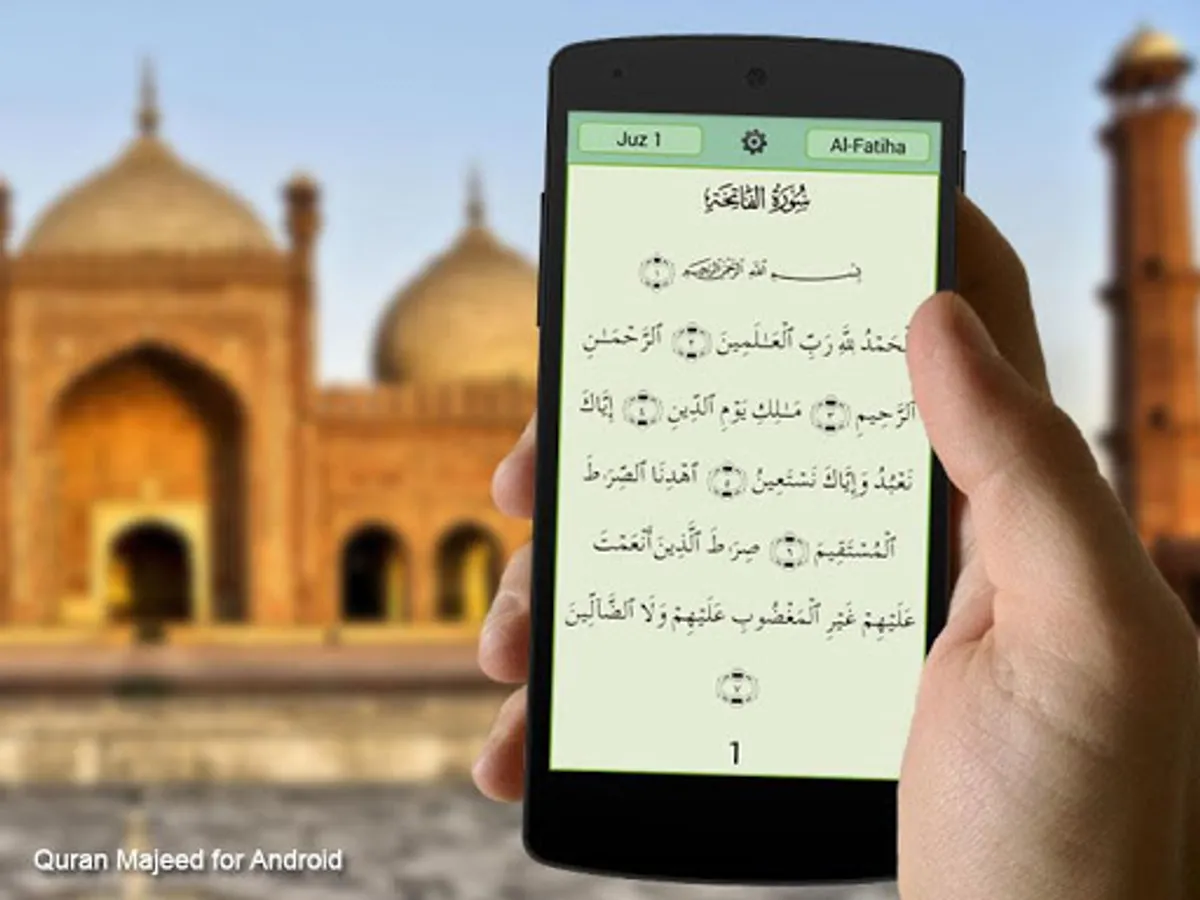 Juz 1
Al-Fatiha
سُورَةُ الفَاتِحَةِ
بِسْمِ ٱللَّهِ ٱلرَّحْمَٰنِ ٱلرَّحِيمِ ١
ٱلْحَمْدُ لِلَّهِ رَبِّ ٱلْعَـٰلَمِينَ ٢ ٱلرَّحْمَـٰنِ
ٱلرَّحِيمِ ٣ مَـٰلِكِ يَوْمِ ٱلدِّينِ ٤ إِيَّاكَ
نَعْبُدُ وَإِيَّاكَ نَسْتَعِينُ ٥ ٱهْدِنَا ٱلصِّرَٰطَ
ٱلْمُسْتَقِيمَ ٦ صِرَٰطَ ٱلَّذِينَ أَنْعَمْتَ
عَلَيْهِمْ غَيْرِ ٱلْمَغْضُوبِ عَلَيْهِمْ وَلَا ٱلضَّآلِّينَ
٧
1
Quran Majeed for Android